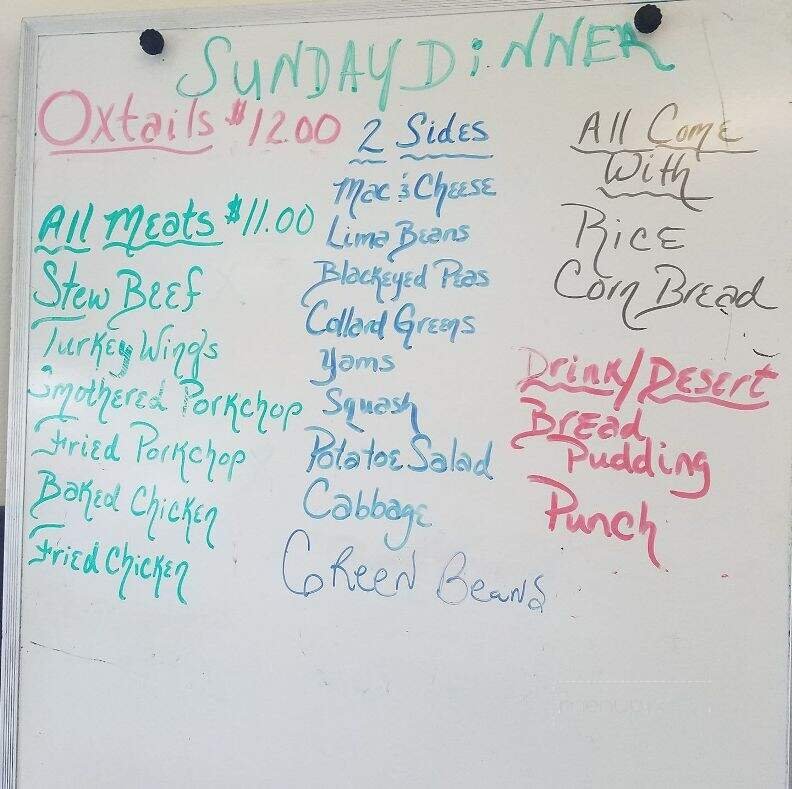 SUNDAY DiNNER
Oxtails $12.00
All Meats $11.00
Stew Beef
Turkey Wings
Smothered Porkchop
Fried Porkchop
Baked Chicken
Fried Chicken
2 Sides
Mac & Cheese
Lima Beans
Blackeyed Peas
Collard Greens
Yams
Squash
Potatoe Salad
Cabbage
Green Beans
All Come
With
Rice
Corn Bread
Drink/Desert
Bread
Pudding
Punch